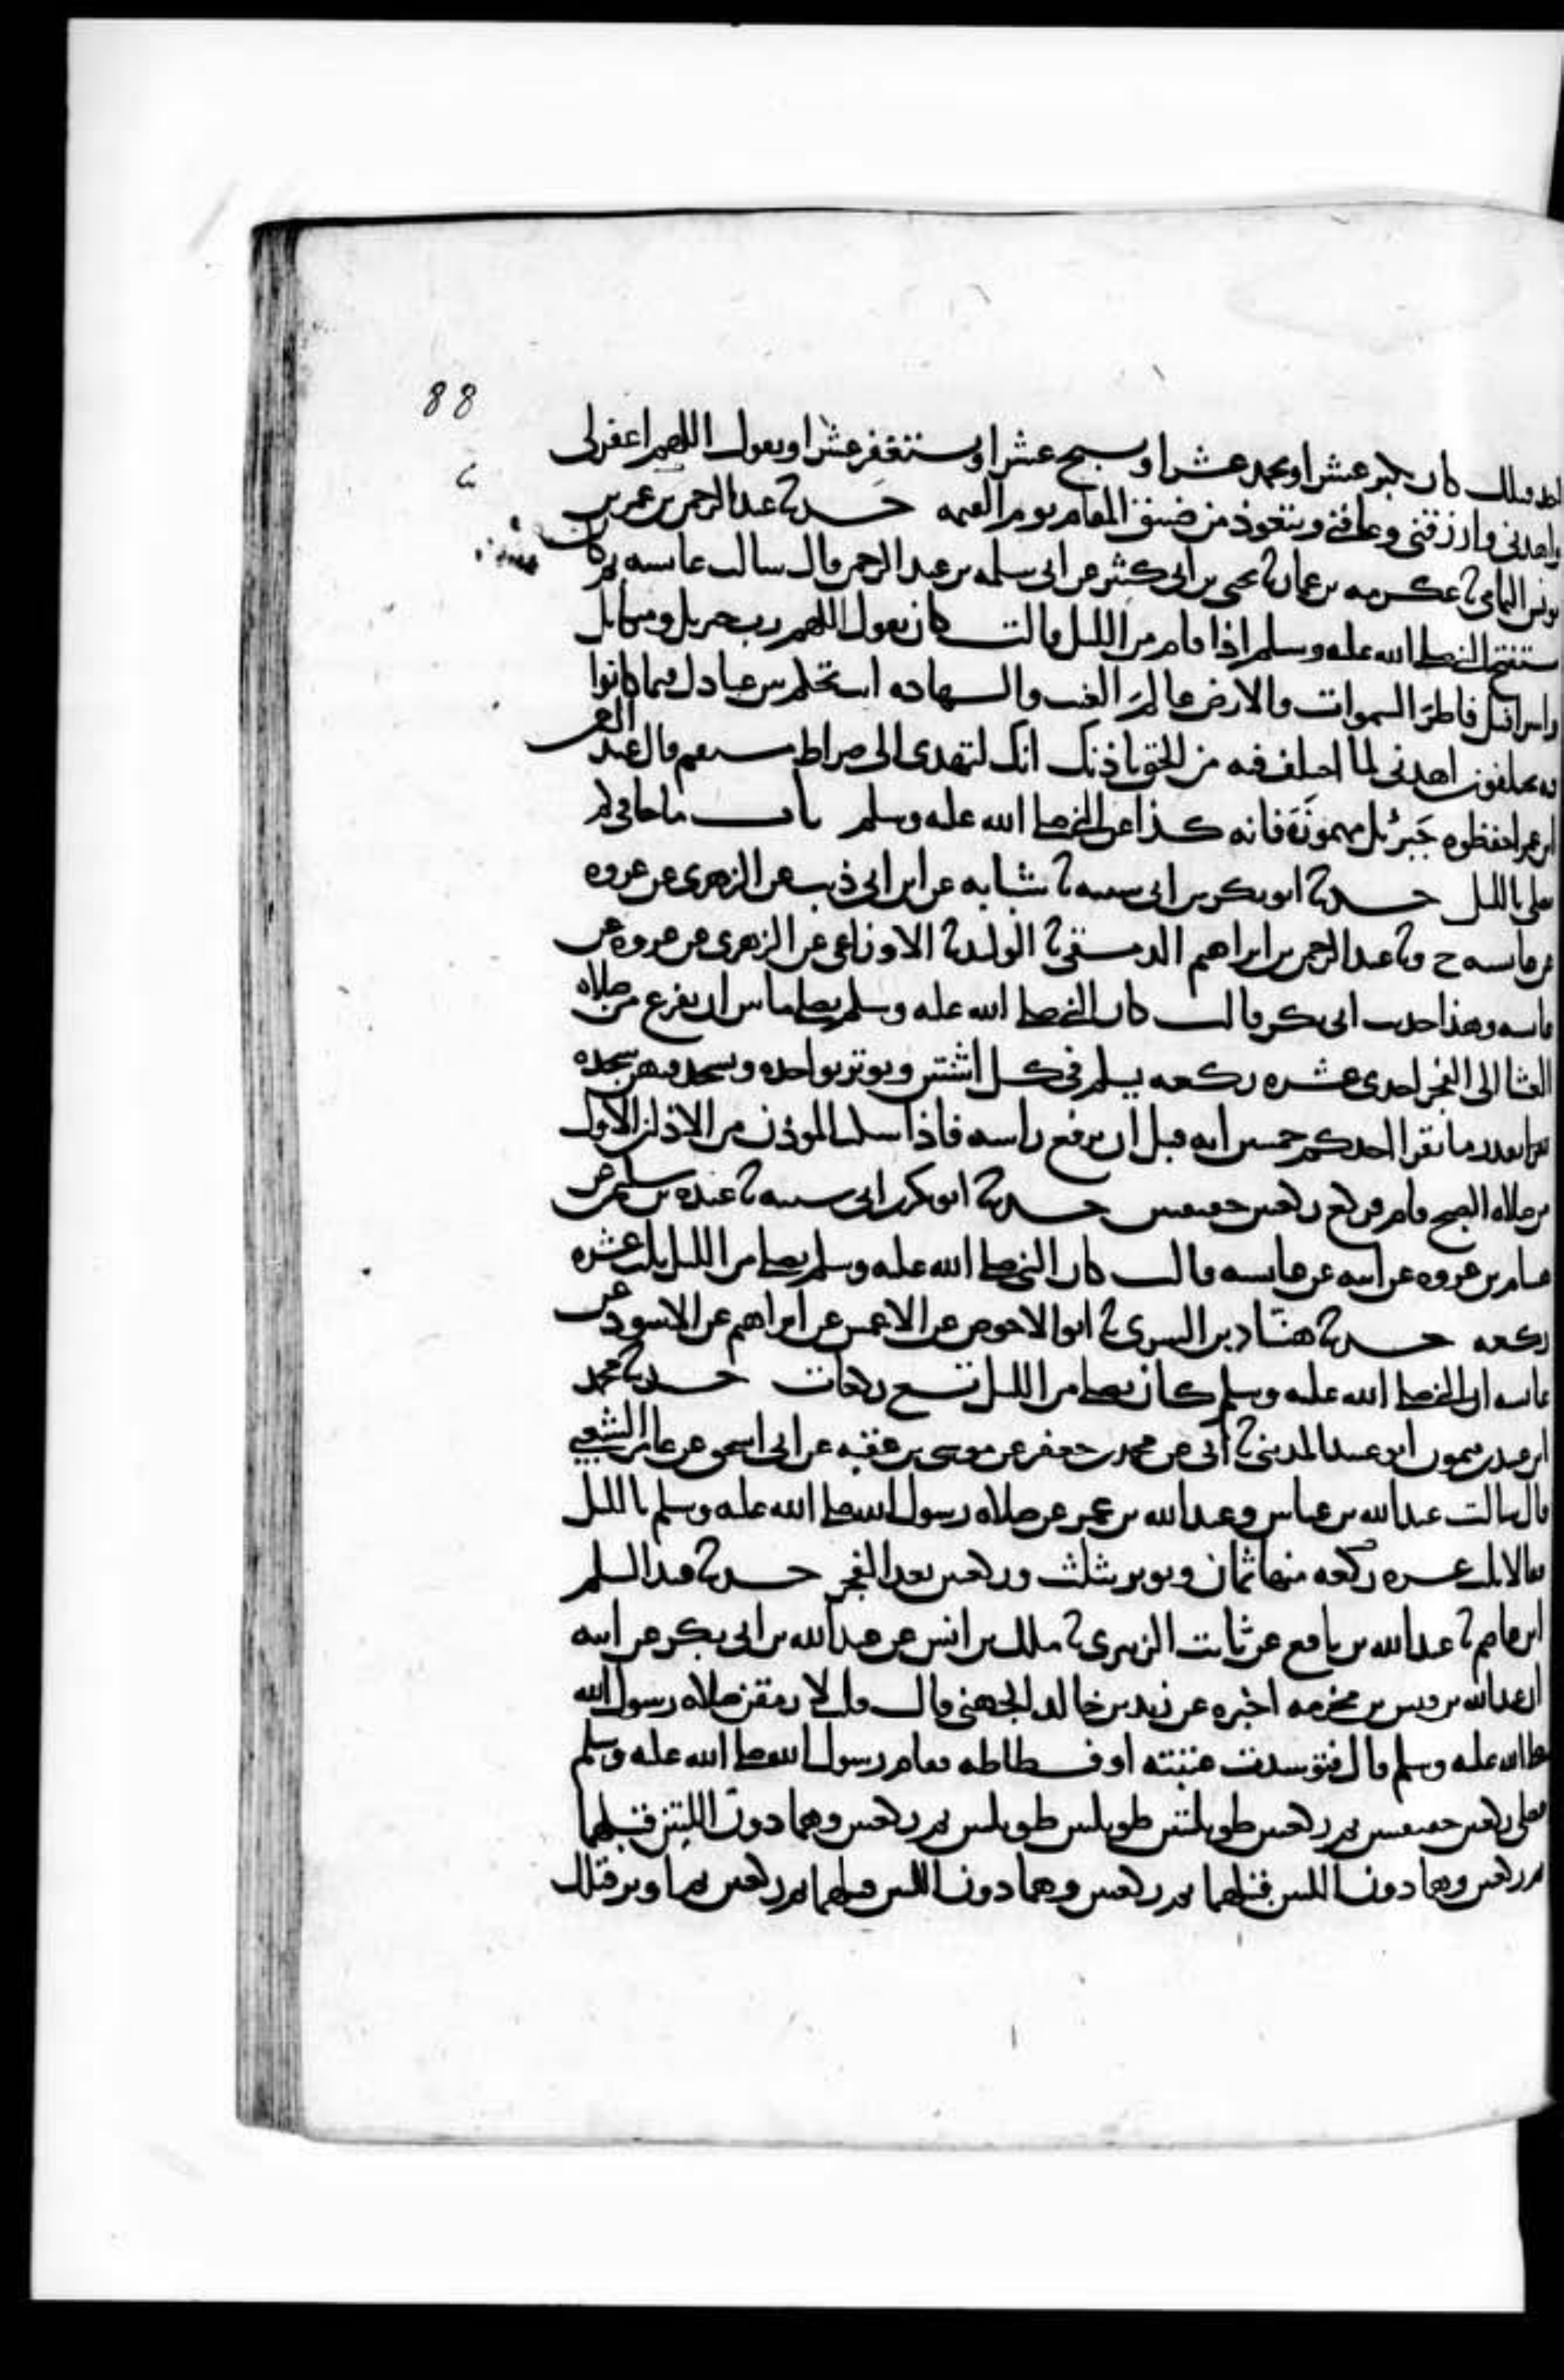 88
احد قبلك كان يكبر عشرا ويحمد عشرا ويسبح عشرا ويستغفر عشرا ويقول اللهم اغفر لى
واهدنى وارزقنى وعافنى ويتعوذ من ضيق المقام يوم القيمه حدثنا عبد الرحمن بن عمر بن
يونس اليمامى نا عكرمه بن عمار نا يحيى بن ابى كثير عن ابى سلمه بن عبد الرحمن قال سالت عايسه بم كان
يستفتح النبى صلى الله عليه وسلم اذا قام من الليل قالت كان يقول اللهم رب جبريل وميكايل
واسرافيل فاطر السموات والارض عالم الغيب والشهاده انت تحكم بين عبادك فيما كانوا
فيه يختلفون اهدنى لما اختلف فيه من الحق باذنك انك لتهدى الى صراط مستقيم قال عبد الرحمن
ابن عمر احفظوه جبرئل مهموزة فانه كذا عن النبى صلى الله عليه وسلم باب ما جا فى كم
يصلى بالليل حدثنا ابو بكر بن ابى شيبه نا شبابه عن ابن ابى ذيب عن الزهرى عن عروه
عن عايسه ح ونا عبد الرحمن بن ابراهيم الدمشقى نا الوليد نا الاوزاعى عن الزهرى عن عروه عن
عايسه وهذا حديث ابى بكر قالت كان النبى صلى الله عليه وسلم يصلى ما بين ان يفرغ من صلاه
العشا الى الفجر احدى عشره ركعه يسلم فى كل اثنتين ويوتر بواحده ويسجد فيهن سجده
بقدر ما يقرا احدكم خمسين ايه قبل ان يرفع راسه فاذا سكت الموذن من الاذان الاول
من صلاه الصبح قام فركع ركعتين خفيفتين حدثنا ابو بكر بن ابى شيبه نا عبده بن سليمن عن
هسام بن عروه عن ابيه عن عايسه قالت كان النبى صلى الله عليه وسلم يصلى من الليل ثلث عشره
ركعه حدثنا هناد بن السرى نا ابو الاحوص عن الاعمش عن ابراهيم عن الاسود عن
عايسه ان النبى صلى الله عليه وسلم كان يصلى من الليل تسع ركعات حدثنا محمد
ابن عبيد بن ميمون ابو عبيد المدينى نا ابى عن محمد بن جعفر عن موسى بن عقبه عن ابى اسحق عن عامر الشعبى
قال سالت عبد الله بن عباس وعبد الله بن عمر عن صلاه رسول الله صلى الله عليه وسلم بالليل
فقالا ثلث عشره ركعه منها ثمان ويوتر بثلث وركعتين بعد الفجر حدثنا عبد السلم
ابن عاصم نا عبد الله بن نافع عن ثابت الزبيرى نا ملك بن انس عن عبد الله بن ابى بكر عن ابيه
ان عبد الله بن قيس بن مخرمه اخبره عن زيد بن خالد الجهنى قال قلت لارمقن صلاه رسول الله
صلى الله عليه وسلم قال فتوسدت عتبته او فسطاطه فقام رسول الله صلى الله عليه وسلم
فصلى ركعتين خفيفتين ثم ركعتين طويلتين طويلتين طويلتين ثم ركعتين وهما دون اللتين قبلهما
ثم ركعتين وهما دون اللتين قبلهما ثم ركعتين وهما دون اللتين قبلهما ثم ركعتين ثم اوتر فتلك